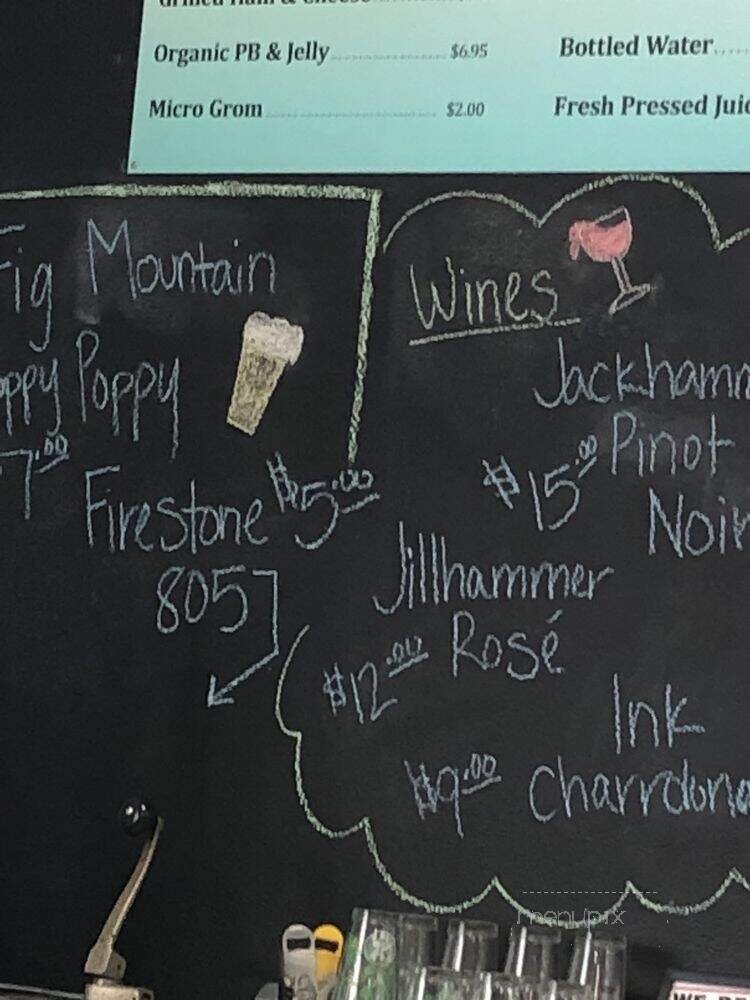 Grilled Ham & Cheese
Organic PB & Jelly $6.95
Micro Grom $2.00
Bottled Water
Fresh Pressed Juic
Fig Mountain
oppy Poppy
7.00
Firestone $5.00
805
Wines
Jackhamm
Pinot
$15.00
Noir
Jillhammer
Rosé
$12.00
Ink
$9.00 Charrdona
menupix